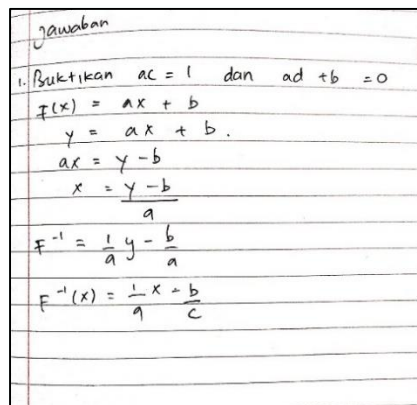 Jawaban
1. Buktikan ac = 1 dan ad + b = 0
F(x) = ax + b
y = ax + b.
ax = y - b
x = \frac{y - b}{a}
F^{-1} = \frac{1}{a} y - \frac{b}{a}
F^{-1}(x) = \frac{1}{a} x - \frac{b}{c}